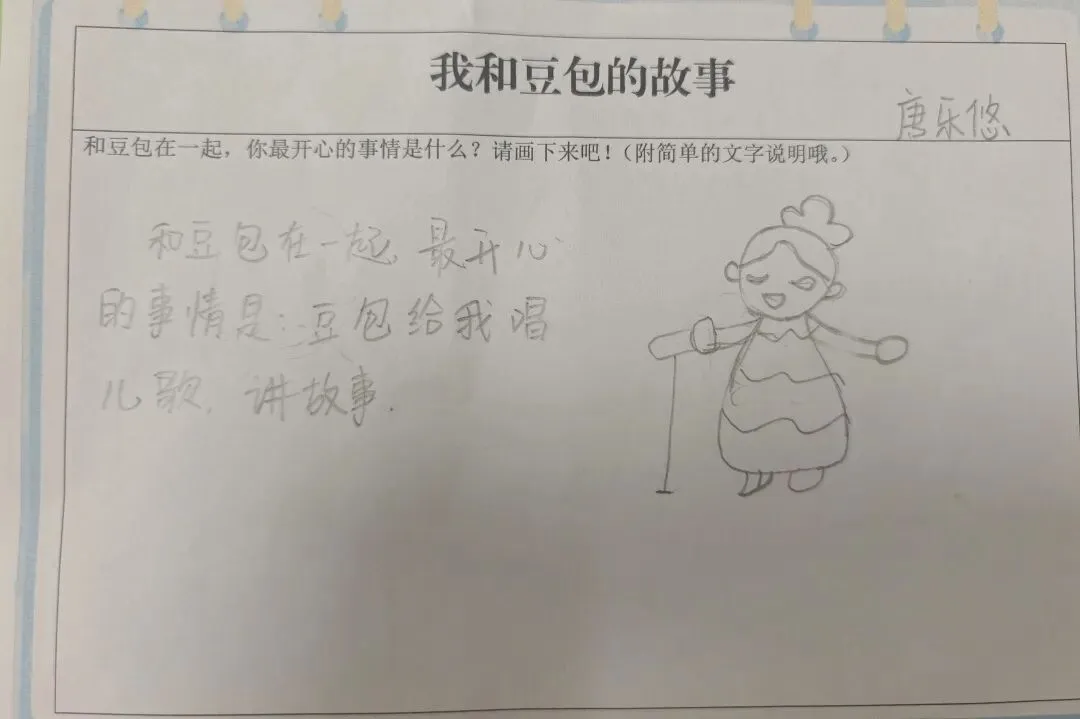 我和豆包的故事
唐乐悠
和豆包在一起，你最开心的事情是什么？请画下来吧！（附简单的文字说明哦。）
和豆包在一起，最开心
的事情是：豆包给我唱
儿歌，讲故事.